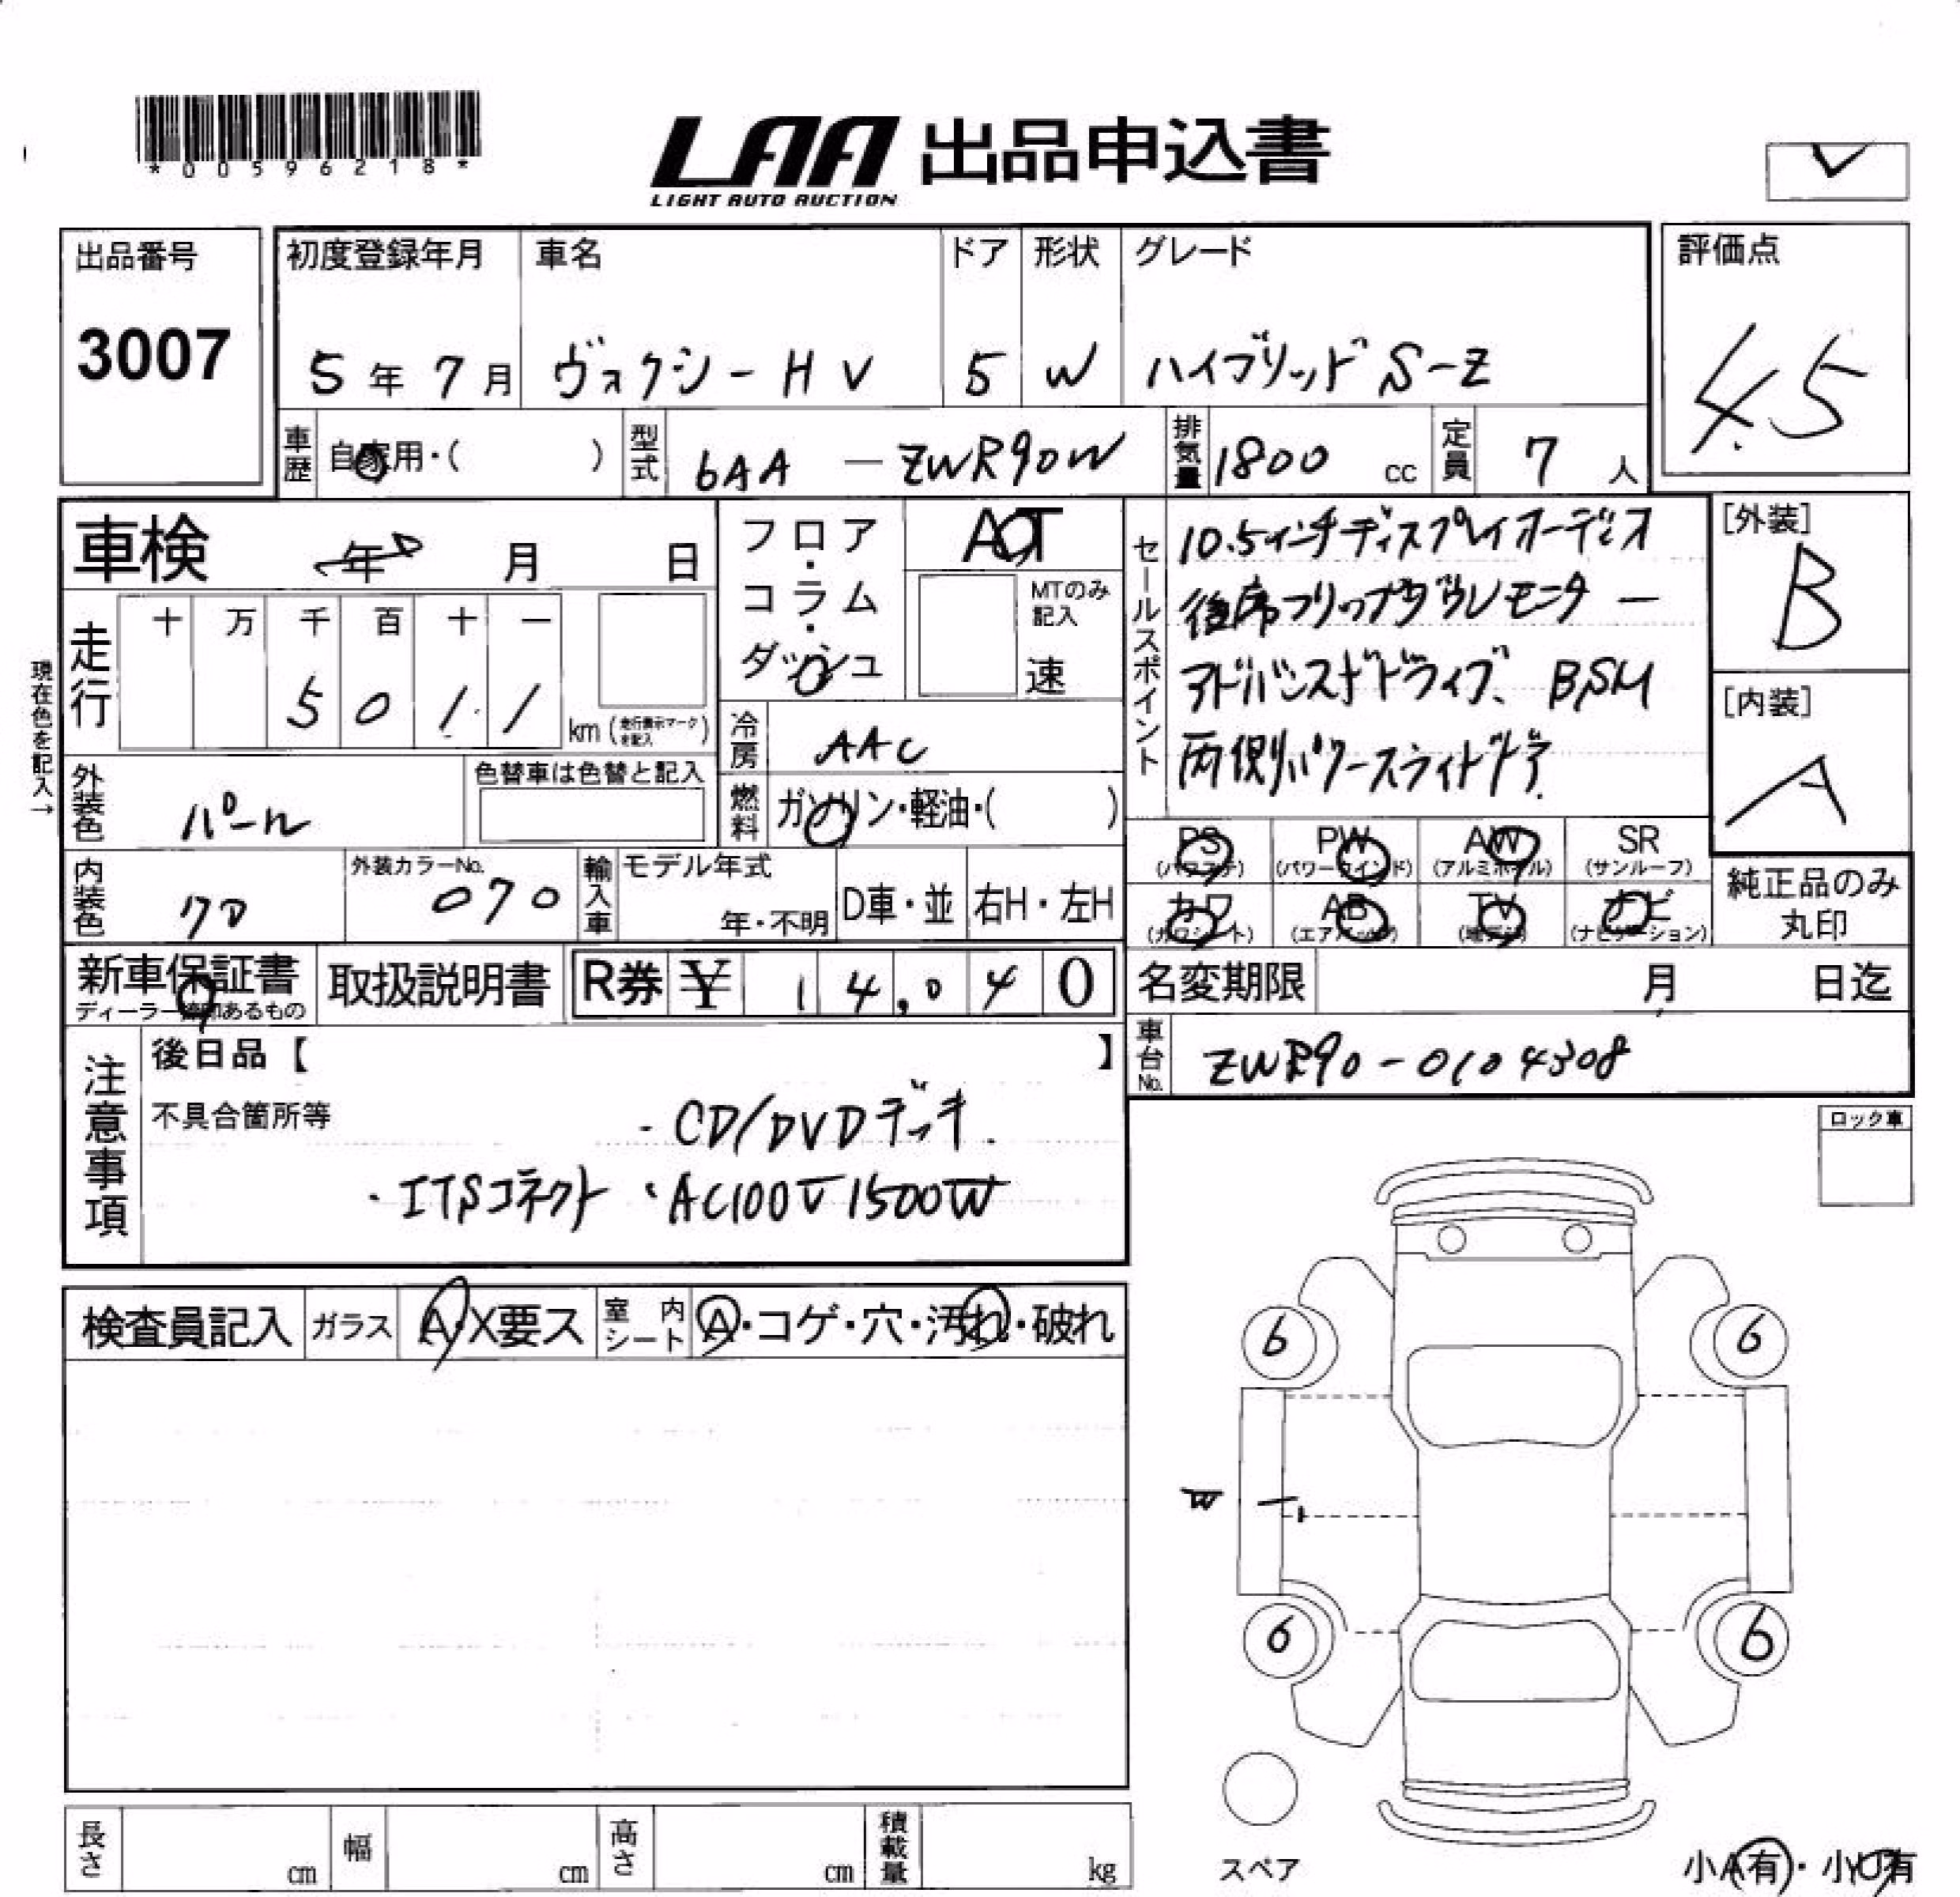 *00596218*
LAA 出品申込書
LIGHT AUTO AUCTION
出品番号
3007
初度登録年月
5年7月
車名
ヴォクシーHV
ドア
5
形状
W
グレード
ハイブリッドS-Z
評価点
4.5
車歴
自家用・( )
型式
6AA-ZWR90W
排気量
1800cc
定員
7人
車検
年 月 日
現在色を記入→
走行
十 万 千 百 十 一
5 0 1 1
km(走行表示マークを記入)
フロア・コラム・ダッシュ
AT
MTのみ記入
速
冷房
AAC
燃料
ガソリン・軽油・( )
セールスポイント
10.5インチディスプレイオーディオ
後席フリップダウンモニター
アドバンスドドライブ、BSM
両側パワースライドドア
[外装]
B
[内装]
A
外装色
パール
色替車は色替と記入
内装色
クロ
外装カラーNo.
070
輸入車
モデル年式
年・不明
D車・並
右H・左H
PS
(パワステ)
PW
(パワーウインド)
AW
(アルミホイル)
SR
(サンルーフ)
カワ
(カワシート)
AB
(エアバッグ)
TV
(地デジ)
ナビ
(ナビゲーション)
純正品のみ
丸印
新車保証書
ディーラー捺印あるもの
取扱説明書
R券 ¥ 14,040
名変期限
月 日迄
車台No.
ZWR90-0104308
注意事項
後日品【 】
不具合箇所等
・CD/DVDデッキ
・ITSコネクト ・AC100V1500W
ロック車
検査員記入
ガラス
A・X要ス
室内シート
A・コゲ・穴・汚れ・破れ
6
6
W
6
6
スペア
長さ
cm
幅
cm
高さ
cm
積載量
kg
小A有・小U有